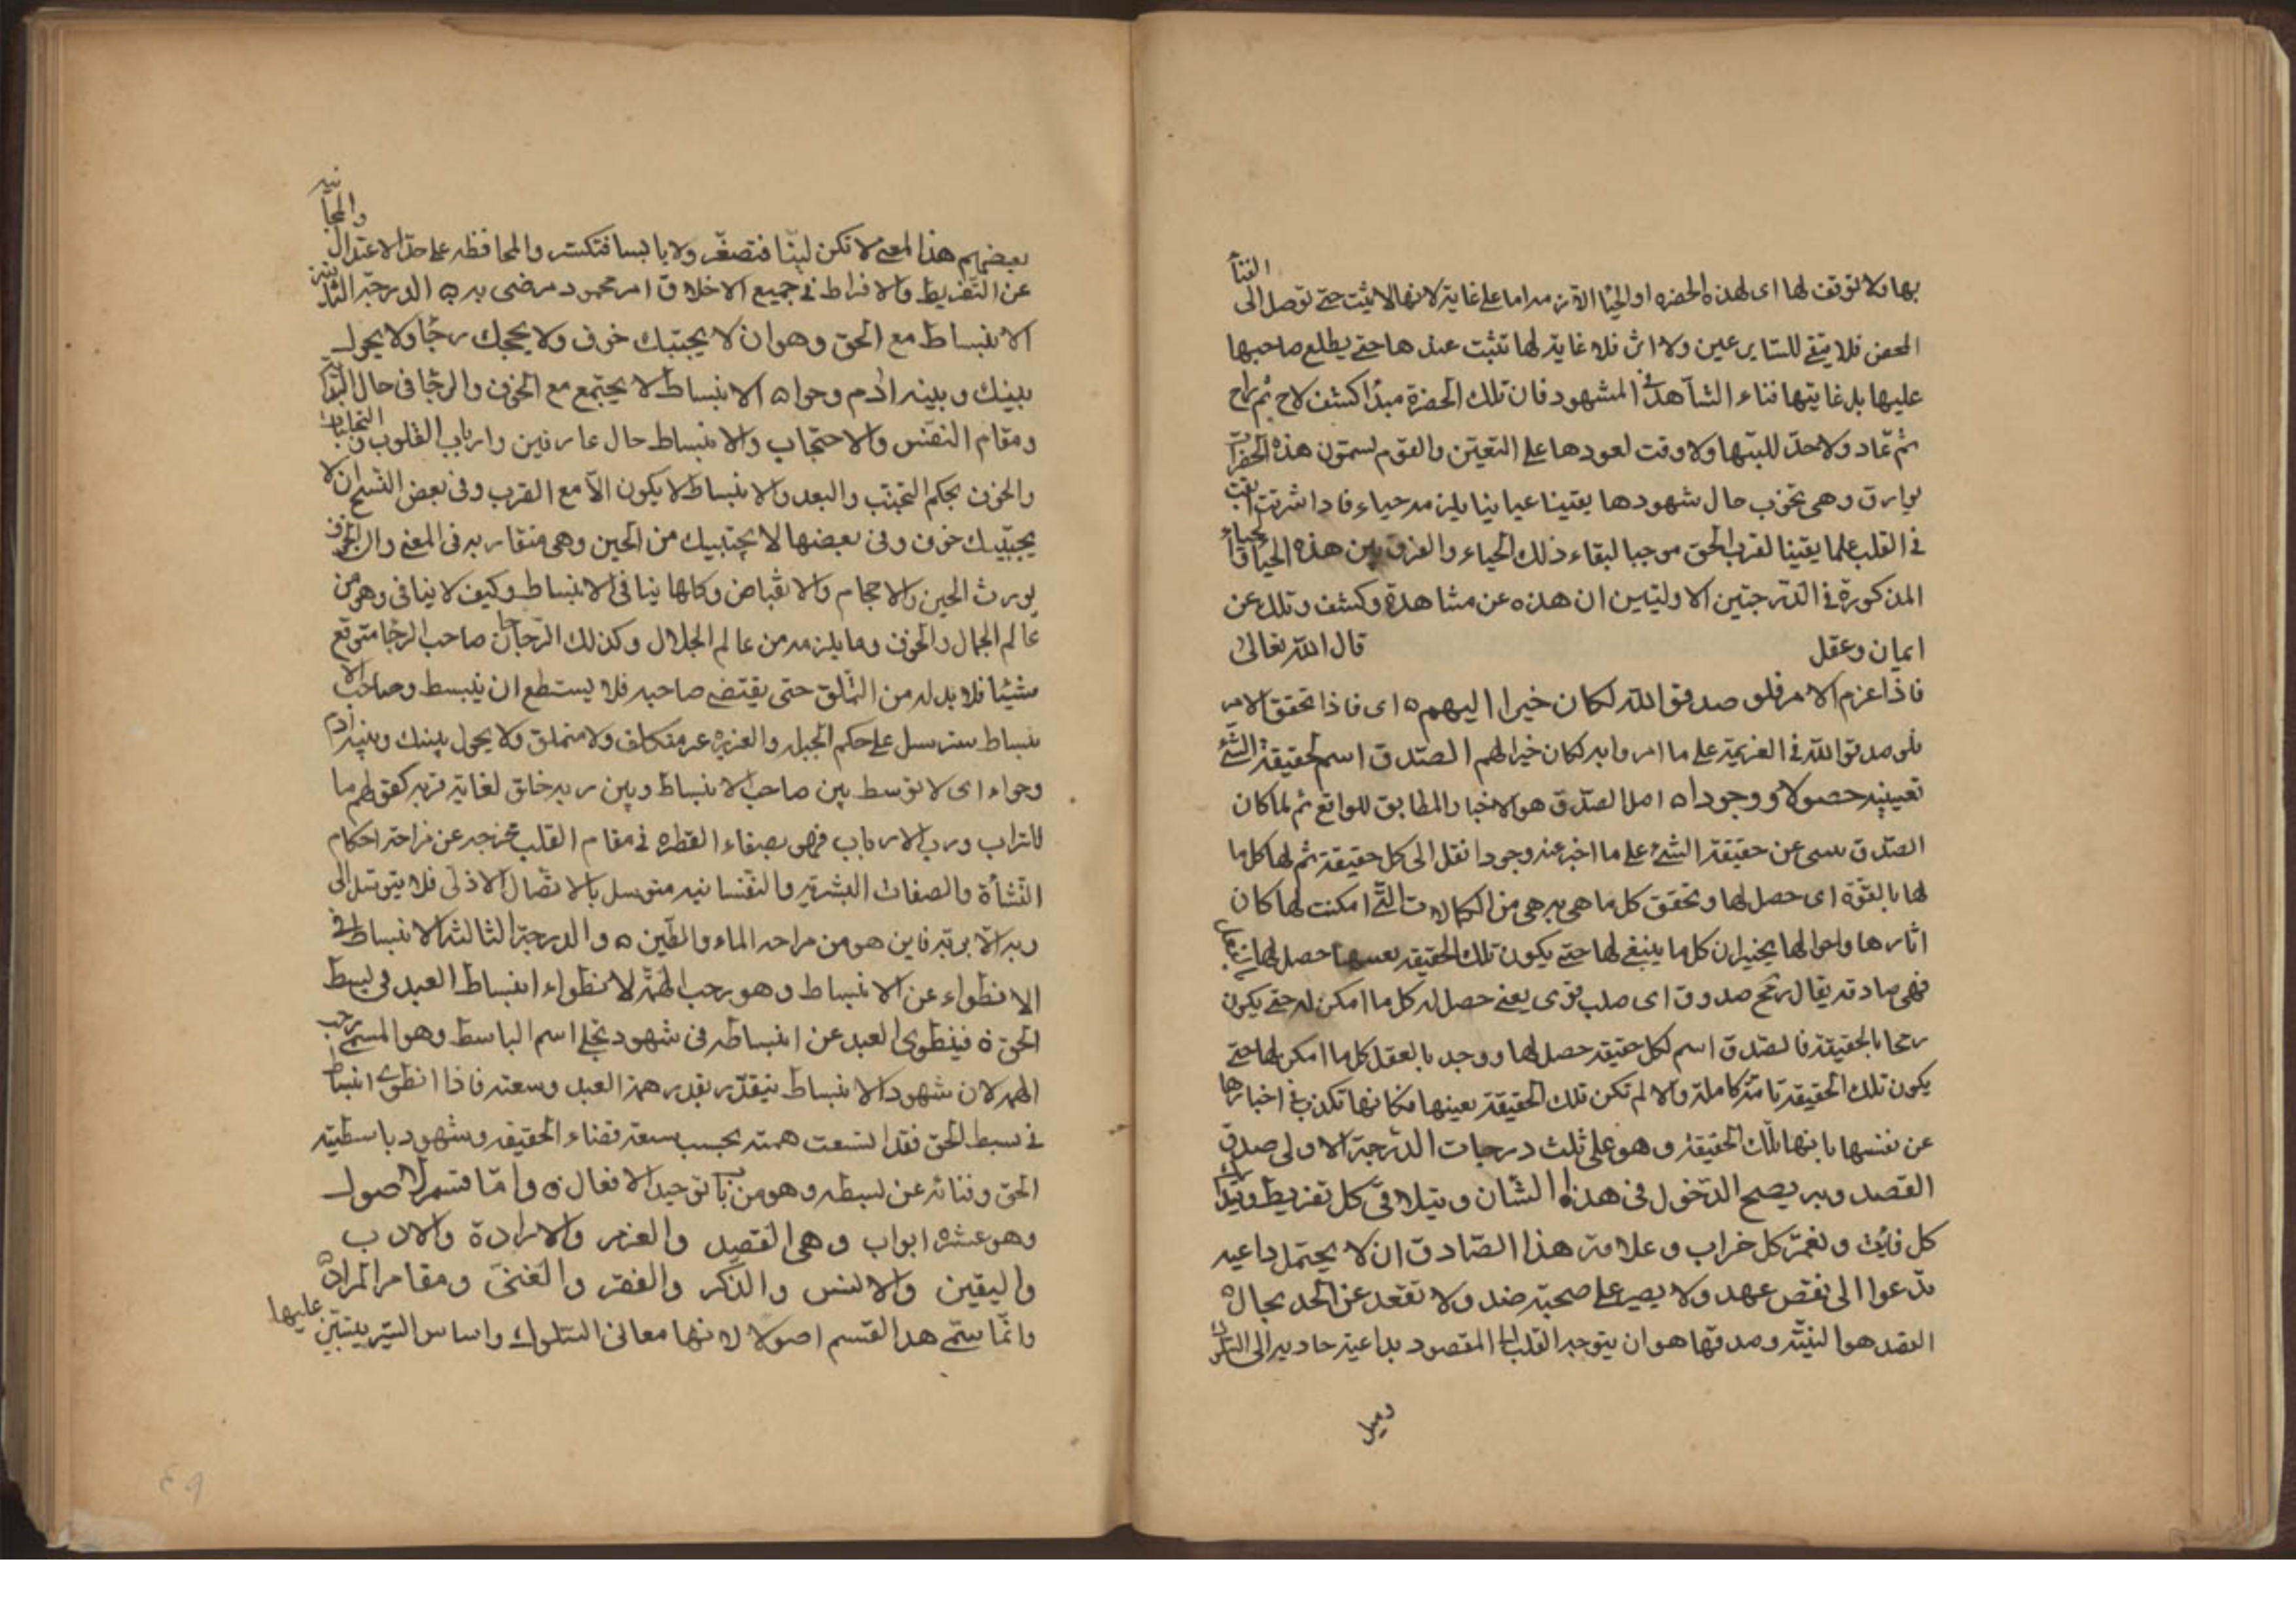 الفنآ
بها ولا توقف لها اى لهذه الحضره او الحيا اللازمه اما على غاية لانها لا يثبت حتى توصل الى
المحض فلا يبقى للساير عين ولا اثر فلا غاية لها تثبت عندها حتى يطلع صاحبها
عليها بل غايتها فناء الشاهد فى المشهود فان تلك الحضرة مبدا كشف لاح ثم راح
ثم عاد ولا حد للبثها ولا وقت لعودها على التعيين والقوم يسمون هذه الحضرات
بوارق وهى تخزب حال شهودها يقينا عيانيا يلزمه حياء فاذا شرقت ابقت
فى القلب علما يقينا لقرب الحق موجبا لبقاء ذلك الحياء والفرق بين هذه الحيا والحياء
المذكورة فى الدرجتين الاوليين ان هذه عن مشاهدة وكشف وتلك عن
ايمان وعقل قال الله تعالى
فاذا عزم الامر فلو صدقوا الله لكان خيرا اليهم ه اى فاذا تحقق الامر
فلو صدقوا الله فى العزيمة على ما امروا به لكان خيرا لهم الصدق اسم لحقيقة الشئ
تعيينه حصولا ووجودا ه اصل الصدق هو الاخبار المطابق للواقع ثم لما كان
الصدق يسى عن حقيقة الشئ على ما اخبر عنه وجودا نقل الى كل حقيقة ثم لها كل ما
لها بالقوة اى حصل لها وتحقق كل ما هى به هى من الكمالات التى امكنت لها كان
اثارها واحوالها يخبران كل ما ينبغى لها حتى يكون تلك الحقيقة بعينها حصل لها بالفعل
فهى صادقه يقال رمح صدوق اى صلب قوى يعنى حصل له كل ما امكن له حتى يكون
رمحا بالحقيقة فالصدق اسم لكل حقيقه حصل لها ووجد بالعقل كل ما امكن لها حتى
يكون تلك الحقيقة تامة كاملة والا لم تكن تلك الحقيقة بعينها فكانها تكذب فى اخبارها
عن نفسها بانها تلك الحقيقة وهو على ثلث درجات الدرجة الاولى صدق
القصد وبه يصح الدخول فى هذا الشان ويتلافى كل تفريط ويتدارك
كل فايت ويعمر كل خراب وعلامة هذا الصادق ان لا يحتمل داعيه
تدعوا الى نقص عهد ولا يصبر على صحبة ضد ولا تقعد عن الحد بحال ه
القصد هو النية وصدقها هو ان يتوجه القلب الى المقصود بداعية جاذبه الى السلوك
وميل
والمجانبه
بعضهم هذا المعنى لا تكن لينا فتصغر ولا يابسا فتكسر والمحافظه على حد الاعتدال
عن التفريط والافراط فى جميع الاخلاق امر محمود مرضى به ه الدرجة الثانيه
الانبساط مع الحق وهو ان لا يجنبك خوف ولا يحجبك رجا ولا يحول
بينك وبينه ادم وحوا ه الانبساط لا يجتمع مع الخوف والرجا فى حال التذكر
ومقام النفس والاحتجاب والانبساط حال عارفين وارباب القلوب والتجليات
والخوف بحكم التجنب والبعد والانبساط لا يكون الا مع القرب وفى بعض النسخ ان لا
يجنبك خوف وفى بعضها لا يجتنبيك من الحين وهى متقاربه فى المعنى والخوف
يورث الحين والاحجام والانقباض وكلها ينافى الانبساط وكيف لا ينافى وهو من
عالم الجمال والخوف وما يلزمه من عالم الجلال وكذلك الرجا فان صاحب الرجا متوقع
شيئا فلا بد له من التملق حتى يقتضى صاحبه فلا يستطع ان ينبسط وصاحب الا
نبساط مسترسل على حكم الجبله والغريزه غير متكلف ولا متملق ولا يحول بينك وبينه ادم
وحواء اى لا توسط بين صاحب الانبساط وبين ربه خلق لغاية قربه كقولهم ما
للتراب ورب الارباب فهو بصفاء الفطره فى مقام القلب تخرجه عن مزاحمة احكام
النشأة والصفات البشرية والنفسانيه متوسل بالاتصال الازلى فلا يتوسل الى
ربه الا بربه فاين هو من مزاحمه الماء والطين ه والدرجة الثالثه الانبساط فى
الانطواء عن الانبساط وهو رحب الهمة لانطواء انبساط العبد فى بسط
الحق ه فينطوى العبد عن انبساطه فى شهود تجلى اسم الباسط وهو المسمى برحب
الهمه لان شهود الانبساط يتقدر بقدر همة العبد وسعته فاذا انطوى انبساط
فى بسط الحق فقد اتسعت همته بحسب سعة فضاء الحقيقه وشهود باسطيته
الحق وفنائه عن بسيطه وهو من باب توحيد الافعال ه واما قسم الاصول
وهو عشره ابواب وهى القصد والعزم والارادة والادب
واليقين والانس والذكر والفقر والغنى ومقام المراد
وانما سمى هذا القسم اصولا لانها معانى السلوك واساس السير يبتنى عليها
٤٩